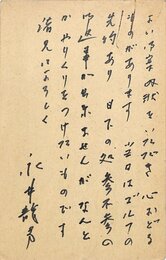 よい御案内状をいただき 心おどる
ものがあります 当日はゴルフの
先約あり 目下の処 参会の
出来ませんがなんと
かやりくりをつけたいものです
諸兄によろしく
永井龍男